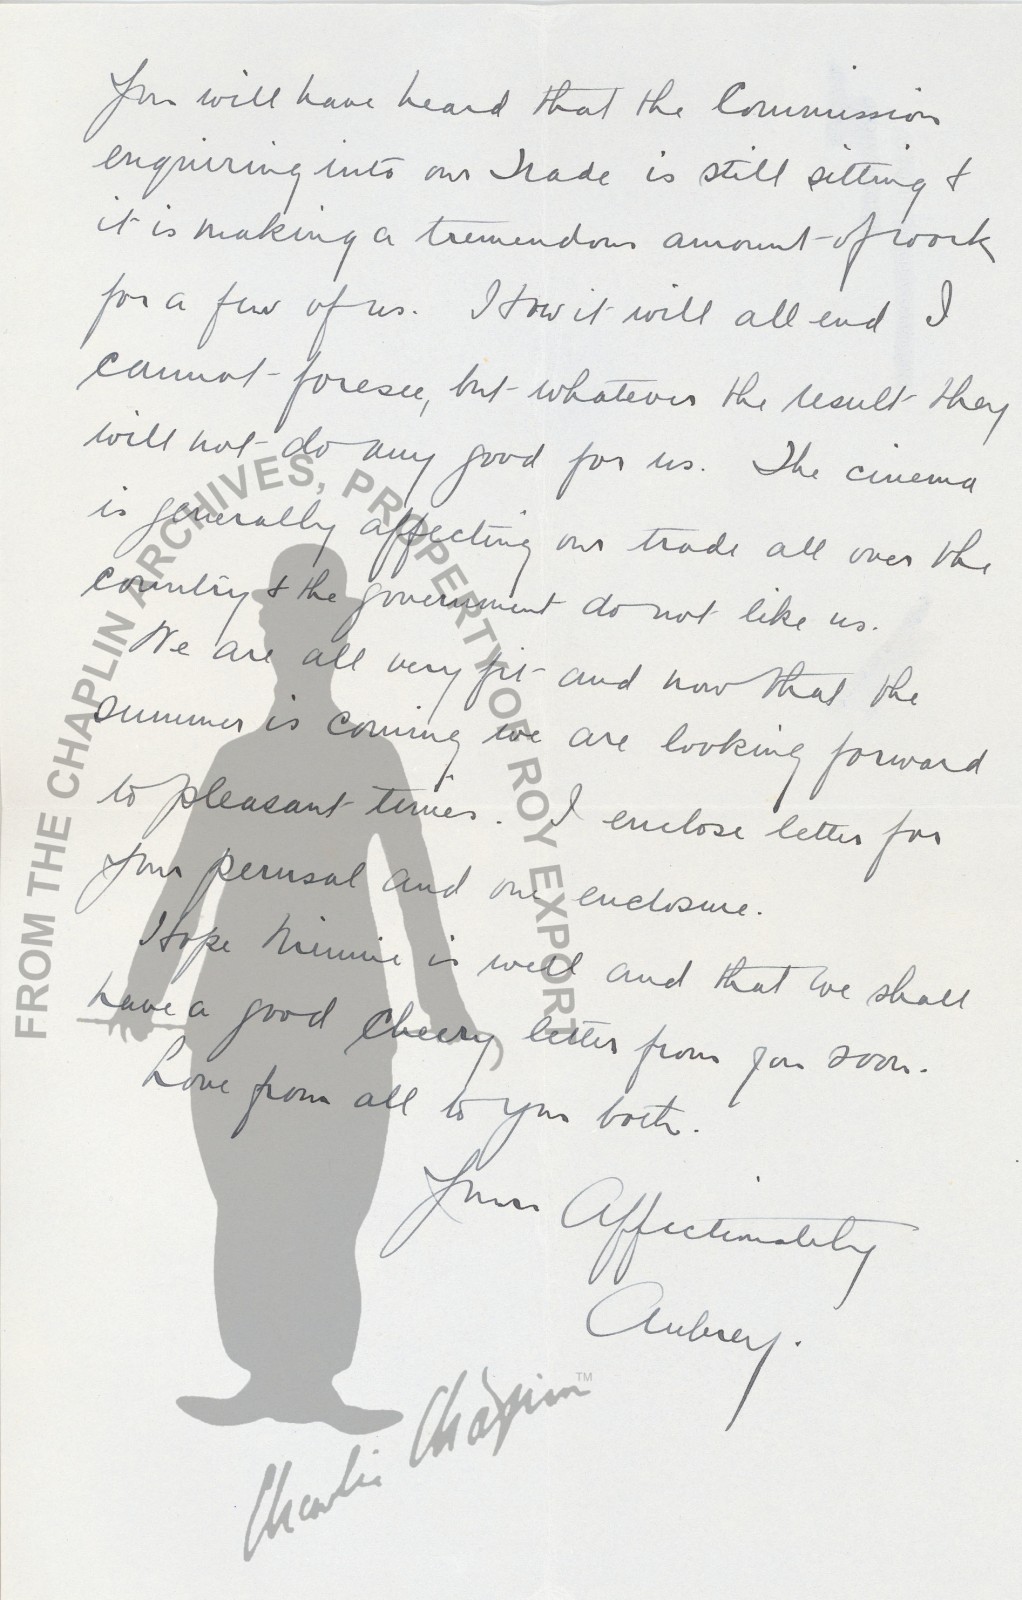 You will have heard that the Commission
enquiring into our Trade is still sitting &
it is making a tremendous amount of work
for a few of us. How it will all end I
cannot foresee, but whatever the result they
will not do any good for us. The cinema
is generally affecting our trade all over the
country & the government do not like us.
We are all very fit and now that the
summer is coming we are looking forward
to pleasant times. I enclose letter for
your perusal and one enclosure.
Hope Minnie is well and that we shall
have a good cheery letter from you soon.
Love from all to you both.
Yours Affectionately
Aubrey.
FROM THE CHAPLIN ARCHIVES, PROPERTY OF ROY EXPORT
Charlie Chaplin™